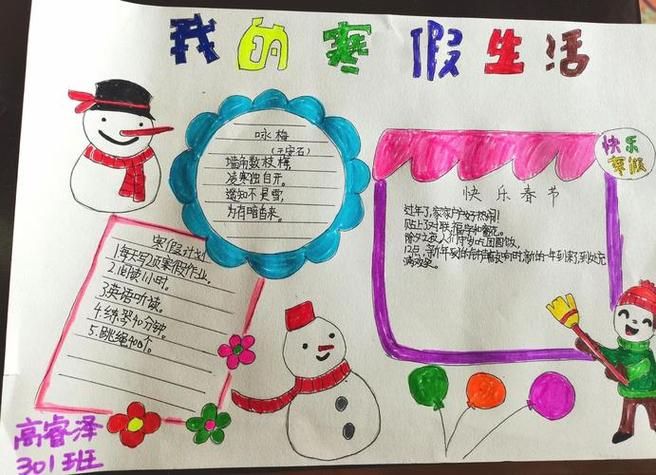 我的寒假生活
快乐
寒假
咏梅
(王安石)
墙角数枝梅,
凌寒独自开。
遥知不是雪,
为有暗香来。
快乐春节
过年了,家家户户好热闹!
贴上了对联、福字和窗花。
除夕之夜,人们围坐吃团圆饭。
满欢笑。
寒假计划
1.每天写2页寒假作业。
2.阅读1小时。
3.英语听读。
4.练琴40分钟。
5.跳绳400个。
高睿泽
301班